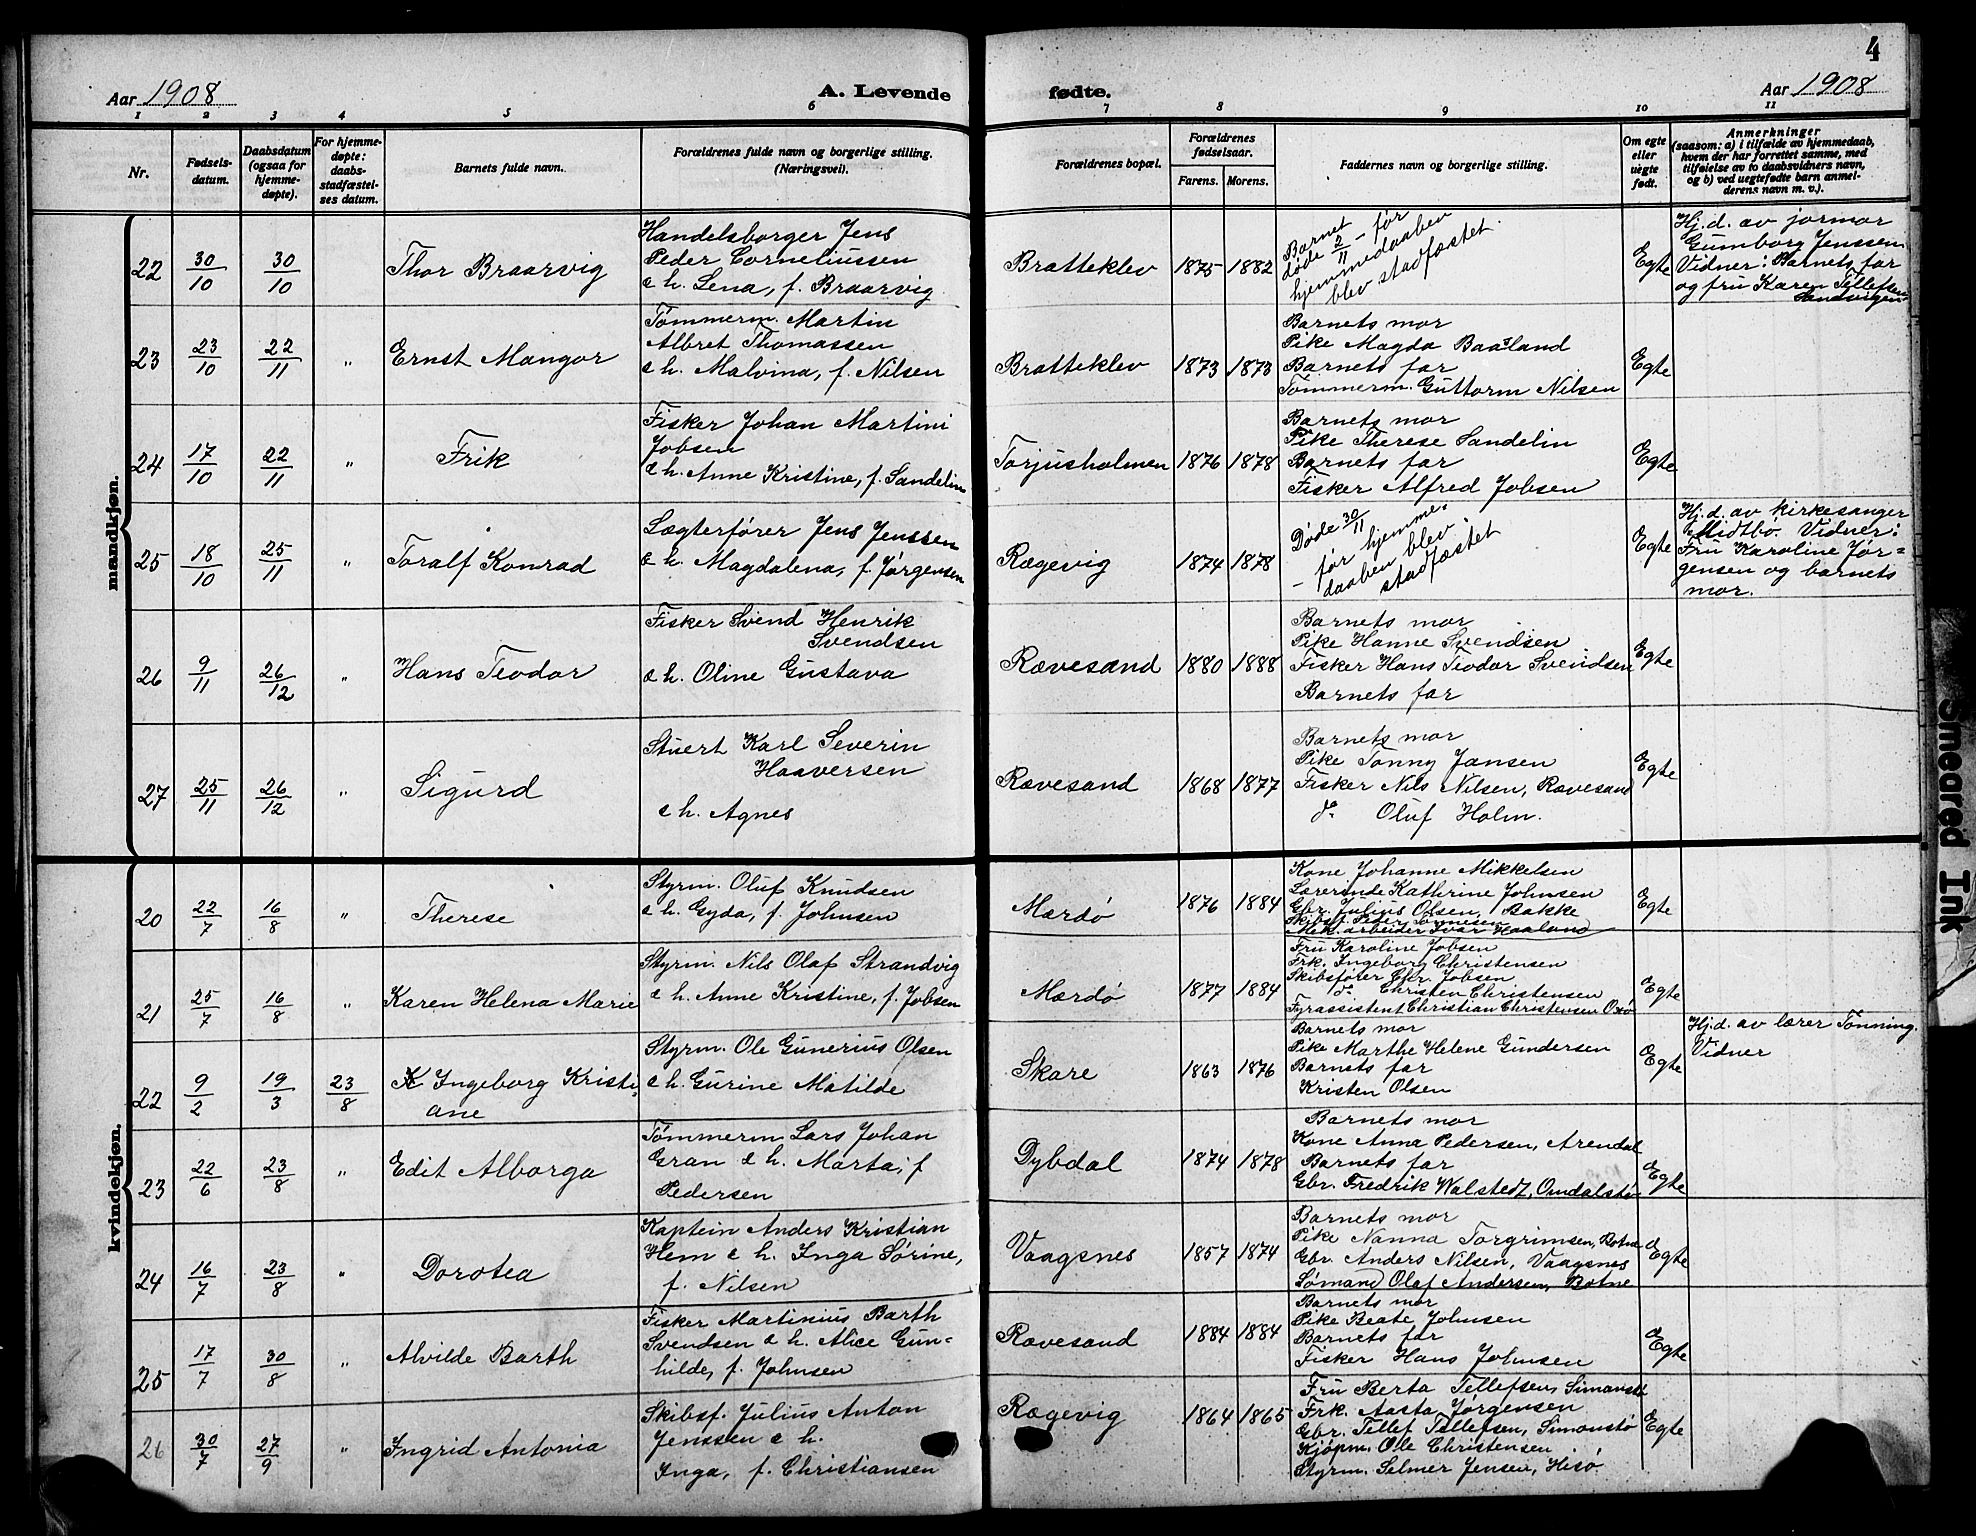 4
Aar 1908
A. Levende
fødte.
Aar 1908
1 2 3 4 5 6 7 8 9 10 11
Nr.
Fødsels-
datum.
Daabsdatum
(ogsaa for
hjemme-
døpte).
For hjemme-
døpte:
daabs-
stadfæstel-
ses datum.
Barnets fulde navn.
Forældrenes fulde navn og borgerlige stilling.
(Næringsvei).
Forældrenes bopæl.
Forældrenes
fødselsaar.
Farens. Morens.
Faddernes navn og borgerlige stilling.
Om egte
eller
uegte
født.
Anmerkninger
(saasom: a) i tilfælde av hjemmedaab,
hvem der har forrettet samme, med
tilføielse av to daabsvidners navn,
og b) ved uegtefødte barn anmel-
derens navn m. v.).
mandkjøn.
22 30/10 30/10 Thor Braarvig
Handelsborger Jens
Peder Corneliussen
& h. Lena, f. Braarvig
Bratteklev 1875 1882
Barnet
døde 2/11 - før
hjemmedaaben
blev stadfæstet.
Egte
Hj. d. av jormor
Gumborg Jenssen
Vidner: Barnets far
og fru Karen Tellefsen
Sandvigen
23 23/10 22/11 " Ernst Mangor
Tømmerm. Martin
Albret Thomassen
& h. Malvina, f. Nilsen
Bratteklev 1873 1873
Barnets mor
Pike Magda Baasland
Barnets far
Tømmerm. Guttorm Nilsen
Egte
24 17/10 22/11 " Frik
Fisker Johan Martini
Jobsen
& h. Anne Kristine, f. Sandelin
Torjusholmen 1876 1878
Barnets mor
Pike Therese Sandelin
Barnets far
Fisker Alfred Jobsen
Egte
25 18/10 25/11 " Toralf Konrad
Lægterfører Jens Jenssen
& h. Magdalena, f. Jørgensen
Rægevig 1874 1878
Døde 30/11
- før hjemme-
daaben blev
stadfæstet
Egte
Hj. d. av kirkesanger
Midtbø. Vidner:
Fru Karoline Jør=
gensen og barnets
mor.
26 9/11 26/12 " Hans Teodor
Fisker Svend Henrik
Svendsen
& h. Oline Gustava
Rævesand 1880 1888
Barnets mor
Pike Hanne Svendsen
Fisker Hans Teodor Svendsen
Barnets far
Egte
27 25/11 26/12 " Sigurd
Stuert Karl Severin
Haaversen
& h. Agnes
Rævesand 1868 1877
Barnets mor
Pike Tonny Jansen
Fisker Nils Nilsen, Rævesand
do Oluf Holm.
Egte
kvindekjøn.
20 22/7 16/8 " Therese
Styrm. Oluf Knudsen
& h. Gyda, f. Johnsen
Mærdø 1876 1884
Kone Johanne Mikkelsen
Lærerinde Kathrine Johnsen
Gbr. Julius Olsen, Bakke
Skibsf. Peder Tønnesen
Mek. arbeider Ivar Haaland
Egte
21 25/7 16/8 " Karen Helena Marie
Styrm. Nils Olaf Strandvig
& h. Anne Kristine, f. Jobsen
Mærdø 1877 1884
Fru Karoline Jobsen
Frk. Ingeborg Christensen
Skibsfører Chr. Jobsen
do Christen Christensen
Fyrassistent Christian Christensen Oxø
Egte
22 9/2 19/3 23/8 Ingeborg Kristi
ane
Styrm. Ole Gunerius Olsen
& h. Gurine Matilde
Skare 1863 1876
Barnets mor
Pike Marthe Helene Gundersen
Barnets far
Kristen Olsen
Egte
Hj. d. av lærer Tønning.
Vidner
23 22/6 23/8 " Edit Alborga
Tømmerm Lars Johan
Gran & h. Marta, f
Pedersen
Dybdal 1874 1878
Barnets mor
Kone Anna Pedersen, Arendal
Barnets far
Gbr. Fredrik Walstedt, Omdalstø
Egte
24 16/7 23/8 " Dorotea
Kaptein Anders Kristian
Hem & h. Inga Sørine,
f. Nilsen
Vaagsnes 1857 1874
Barnets mor
Pike Nanna Torgrimsen, Botne
Gbr. Anders Nilsen, Vaagsnes
Sømand Olaf Andersen, Botne
Egte
25 17/7 30/8 " Alvilde Barth
Fisker Martinius Barth
Svendsen & h. Alice Gun=
hilde, f. Johnsen
Rævesand 1884 1884
Barnets mor
Pike Beate Johnsen
Barnets far
Fisker Hans Johnsen
Egte
26 30/7 27/9 " Ingrid Antonia
Skibsf. Julius Anton
Jenssen & h.
Inga, f. Christiansen
Rægevig 1864 1865
Fru Berta Tellefsen, Simonstø
Frk. Aasta Jørgensen
Gbr. Tellef Tellefsen, Simonstø
Kjøpm. Ole Christensen
Styrm. Selmer Jensen, Hisø
Egte
Smeared Ink